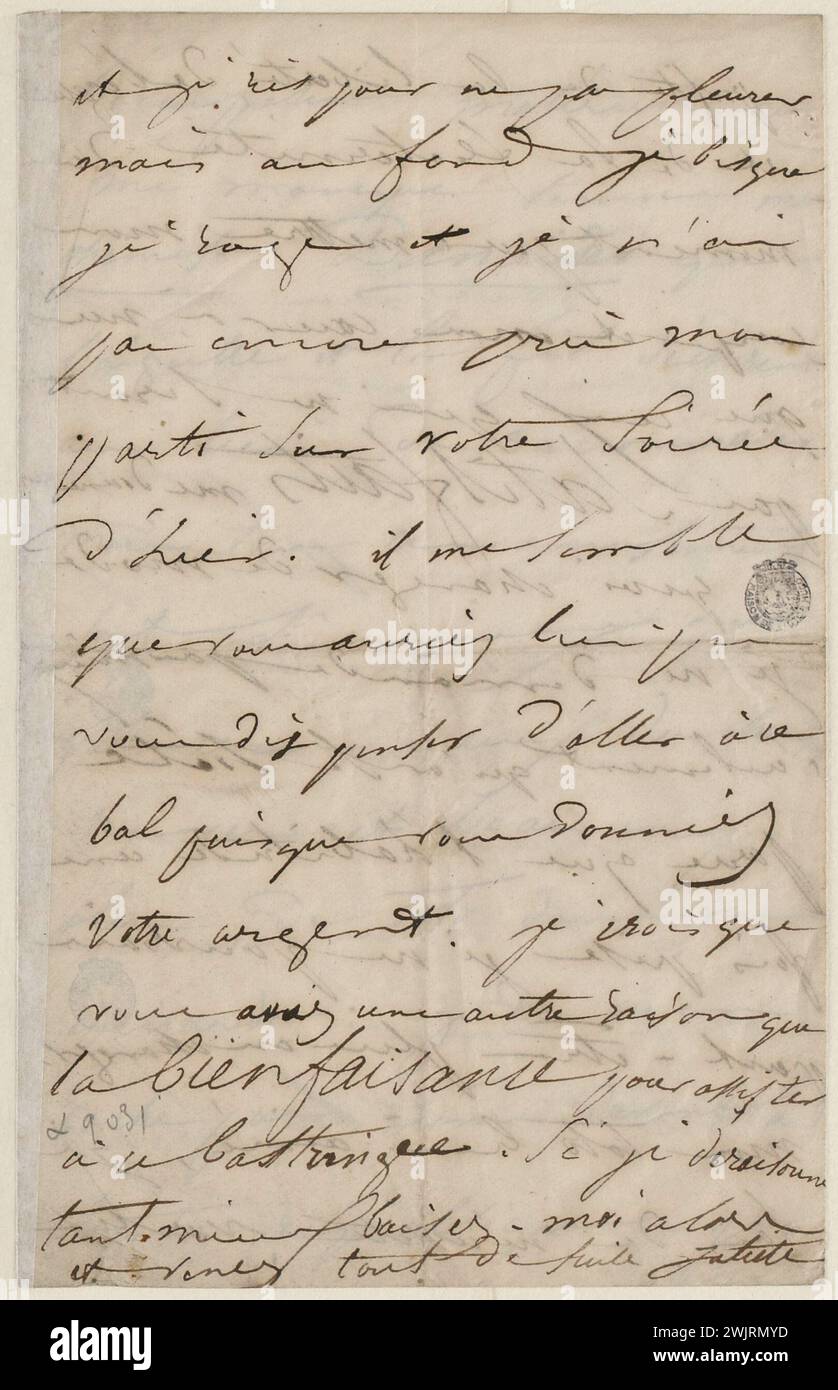 et je ris pour ne pas pleurer
mais au fond je bisque
je rage et je n'ai
pas encore pris mon
parti sur votre soirée
d'hier. il me semble
que vous auriez bien pu
vous dispenser d'aller à ce
bal puisque vous donniez
votre argent. je crois que
vous aviez une autre raison que
la bienfaisance pour assister
à ce bastringue. Si je déraisonne
tant mieux baisez-moi alors
et venez tout de suite Juliette
α 9031
alamy
Image ID: 2WJRMYD
www.alamy.com